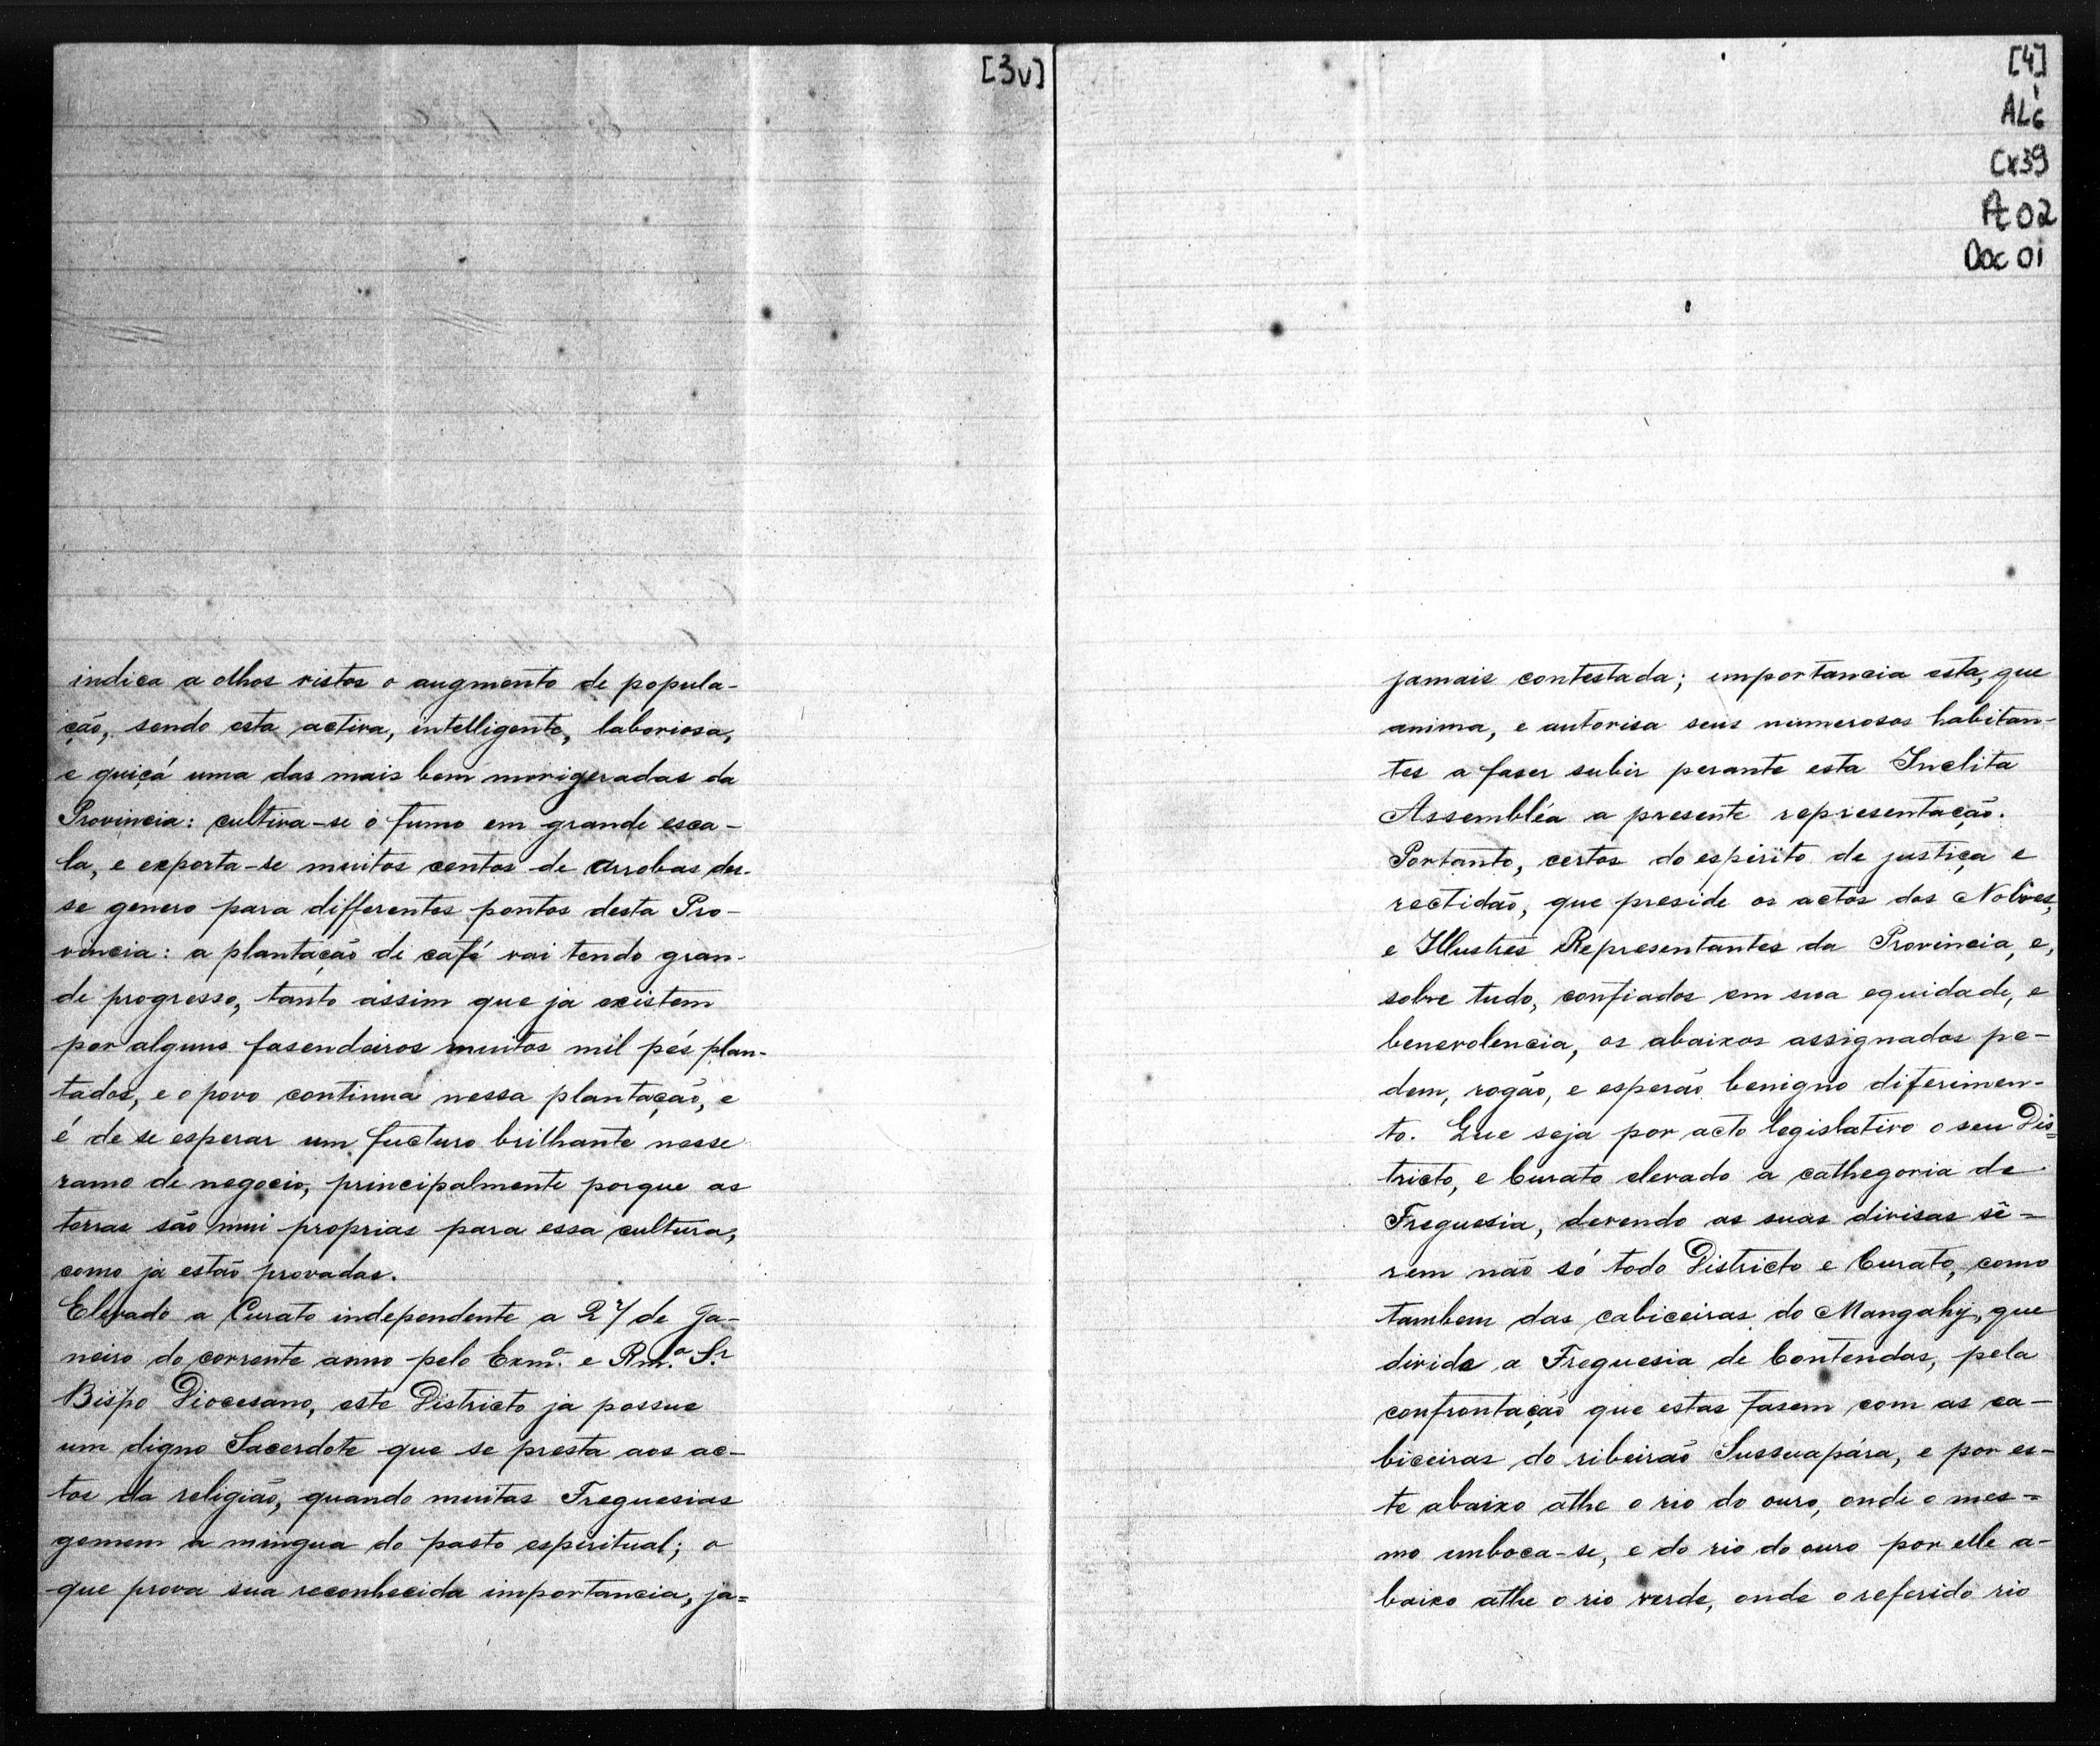 [3v]
indica a olhos vistos o augmento de popula-
ção, sendo esta activa, intelligente, laboriosa,
e quiçá uma das mais bem morigeradas da
Provincia: cultiva-se o fumo em grande esca-
la, e exporta-se muitos centos de arrobas des-
se genero para differentes pontos desta Pro-
vincia: a plantação de café vai tendo gran-
de progresso, tanto assim que ja existem
por alguns fasendeiros muitos mil pés plan-
tados, e o povo continua nessa plantação, e
é de se esperar um fucturo brilhante nesse
ramo de negocio, principalmente porque as
terras são mui proprias para essa cultura,
como ja estão provadas.
Elevado a Curato independente a 27 de Ja-
neiro do corrente anno pelo Exmº. e Rmº. Sr.
Bispo Diocesano, este Districto ja possue
um digno Sacerdote que se presta aos ac-
tos da religião, quando muitas Freguesias
gemem a mingua do pasto espiritual; o
que prova sua reconhecida importancia, ja=
[4]
AL6
Cx39
Pt 02
Doc 01
jamais contestada; importancia esta, que
anima, e autorisa seus numerosos habitan-
tes a faser subir perante esta Inclita
Assembléa a presente representação.
Portanto, certos do espirito de justiça e
rectidão, que preside os actos dos Nobres,
e Illustres Representantes da Provincia, e,
sobre tudo, confiados em sua equidade, e
benevolencia, os abaixos assignados pe-
dem, rogão, e esperão benigno diferimen-
to. Que seja por acto legislativo o seu Dis=
tricto, e Curato elevado a cathegoria de
Freguesia, devendo as suas divisas sê=
rem não só todo Districto e Curato, como
tambem das cabiceiras do Mangahy, que
divide a Freguesia de Contendas, pela
confrontação que estas fasem com as ca-
biceiras do ribeirão Sussuapára, e por es-
te abaixo athe o rio do ouro, onde o mes=
mo emboca-se, e do rio do ouro por elle a-
baixo athe o rio verde, onde o referido rio